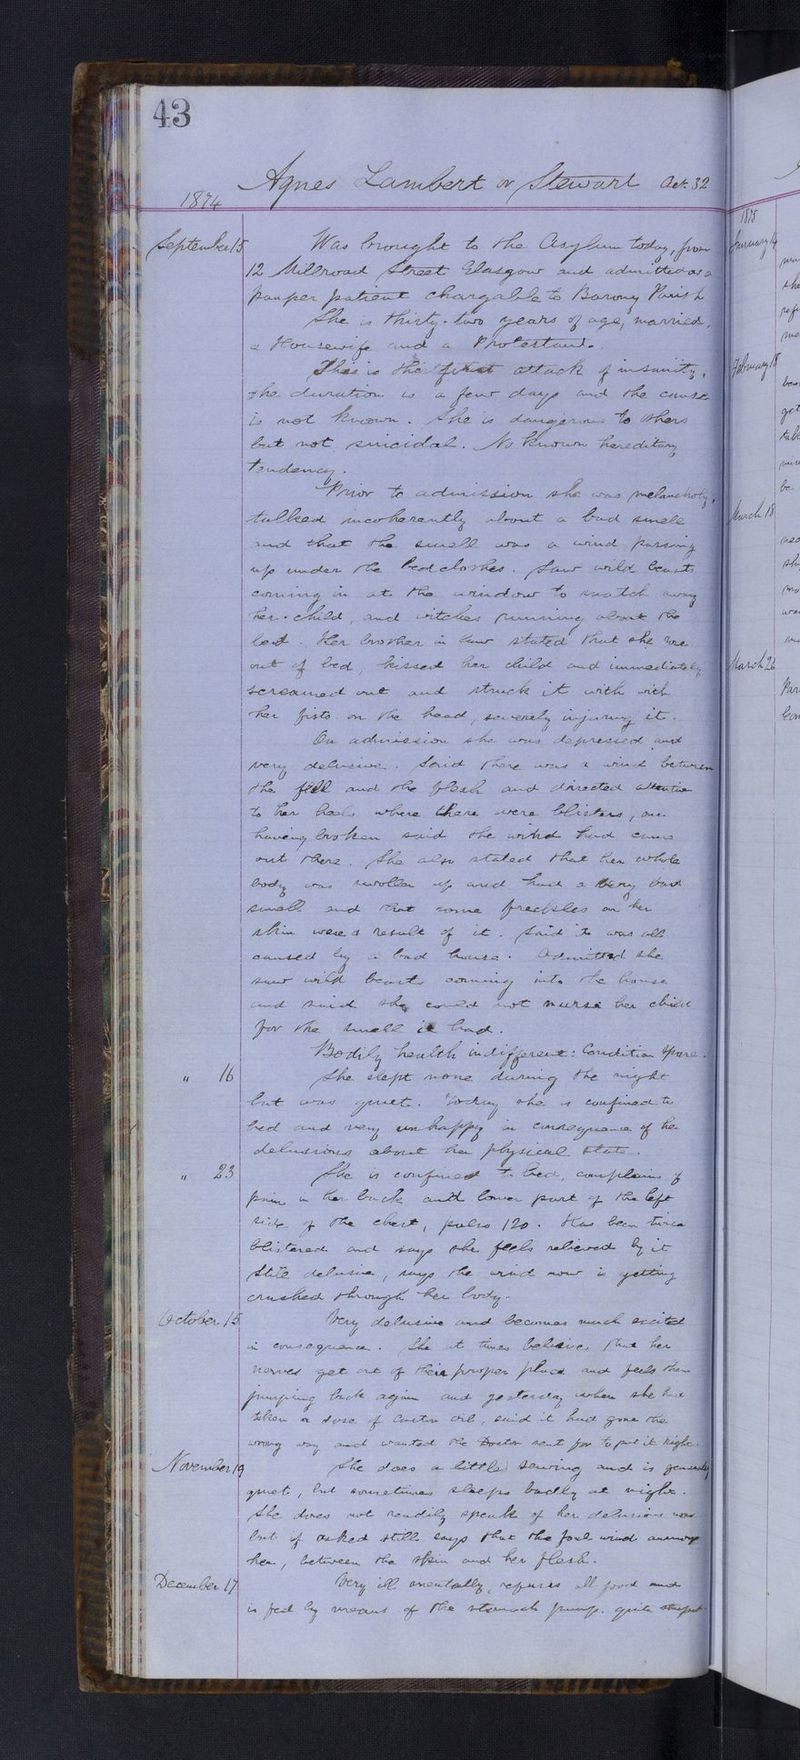 43
Agnes Lambert or Stewart Aet. 32
1874
September 15 Was brought to the Asylum today, from
12 Millroad Street Glasgow and admitted as a
pauper patient chargable to Barony Parish
She is thirty-two years of age, married,
a Housewife and a Protestant.
This is the first attack of insanity,
the duration is a few days and the cause
is not known. She is dangerous to others
but not suicidal. No known hereditary
tendency.
Prior to admission she was melancholy,
talked incoherently about a bad smell
and that the smell was a wind passing
up under the bedclothes. Saw wild beasts
coming in at the window to snatch away
her child, and witches running about the
bed. Her brother in law stated that she rose
out of bed, kissed her child and immediately
screamed out and struck it with with
her fists on the head, severely injuring it.
On admission she was depressed and
very delusive. Said there was a wind between
the fell and the flesh and directed attention
to her heels where there were blisters, one
having broken said the wind had come
out there. She also stated that her whole
body was swollen up and had a very bad
smell and that some freckles on her
skin were a result of it. Said it was all
caused by a bad house. Admitted she
saw wild beasts coming into the house
and said she could not nurse her child
for the smell it had.
Bodily health indifferent: Condition spare.
" 16 She slept none during the night
but was quiet. Today she is confined to
bed and very unhappy in consequence of her
delusions about her physical state.
" 23 She is confined to bed, complains of
pain in her back and lower part of the left
side of the chest, pulse 120. Has been twice
blistered and says she feels relieved by it
Still delusive, says the wind now is getting
crushed through her body.
October 15 Very delusive and becomes much excited
in consequence. She at times believes that her
nerves get out of their proper place and feels them
jumping back again and yesterday when she had
taken a dose of Castor oil, said it had gone the
wrong way and wanted the Doctor sent for to put it right.
November 19 She does a little sewing and is generally
quiet, but sometimes sleeps badly at night.
She does not readily speak of her delusions now
but if asked still says that the foul wind annoys
her, between the skin and her flesh.
December 17 Very ill mentally, refuses all food and
is fed by means of the stomach pump. quite
1875
January 14
February 18
March 18
March 26